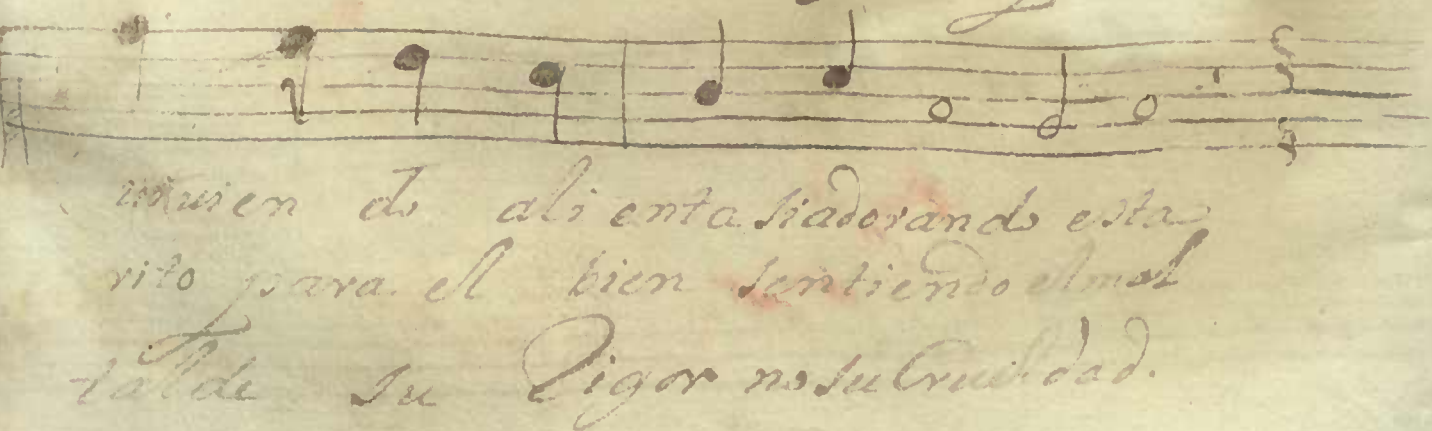 muien do ali enta siadorando esta
rito para el bien sentiendo el mal
talde su Rigor no su Crueldad.